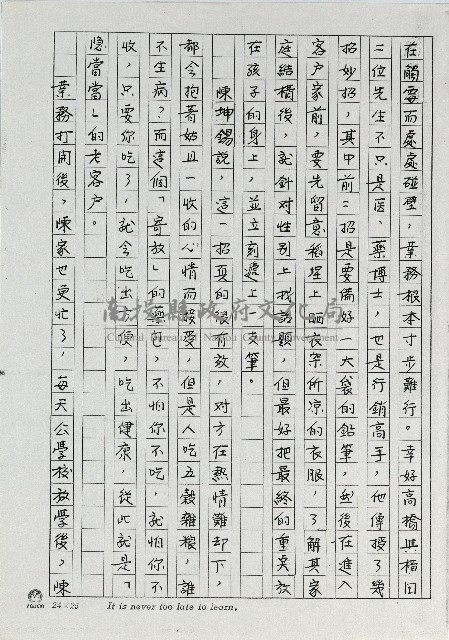 在觸霉而處處碰壁，業務根本寸步難行。幸好高橋與植田
二位先生不只是医、藥博士，也是行銷高手，他傳授了幾
招妙招，其中前二招是要備好一大袋的鉛筆，然後在進入
客户家前，要先留意稻埕上晒衣架所凉的衣服，了解其家
庭結構後，就針对性別上找話題，但最好把最終的重奌放
在孩子的身上，並立刻遞上一支筆。
陳坤錫説，這一招真的很有效，对方在热情難却下，
都会抱着姑且一收的心情而接受，但是人吃五榖雜糧，誰
不生病？而這個「寄放」的藥包，不怕你不吃，就怕你不
收，只要你吃了，就会吃出方便，吃出健康，從此就是「
隱當當」的老客户。
業務打開後，陳家也更忙了，每天公學校放學後，陳
南投縣政府文化局
Cultural Bureau of Nantou County Government
24×25
It is never too late to learn.